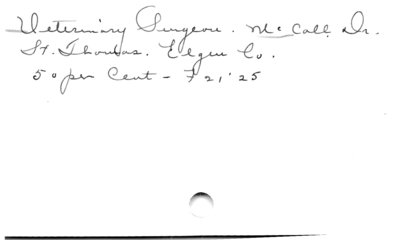 Veterinary Surgeon. McCall, Dr.
St. Thomas. Elgin Co.
50 per Cent - F 21, '25